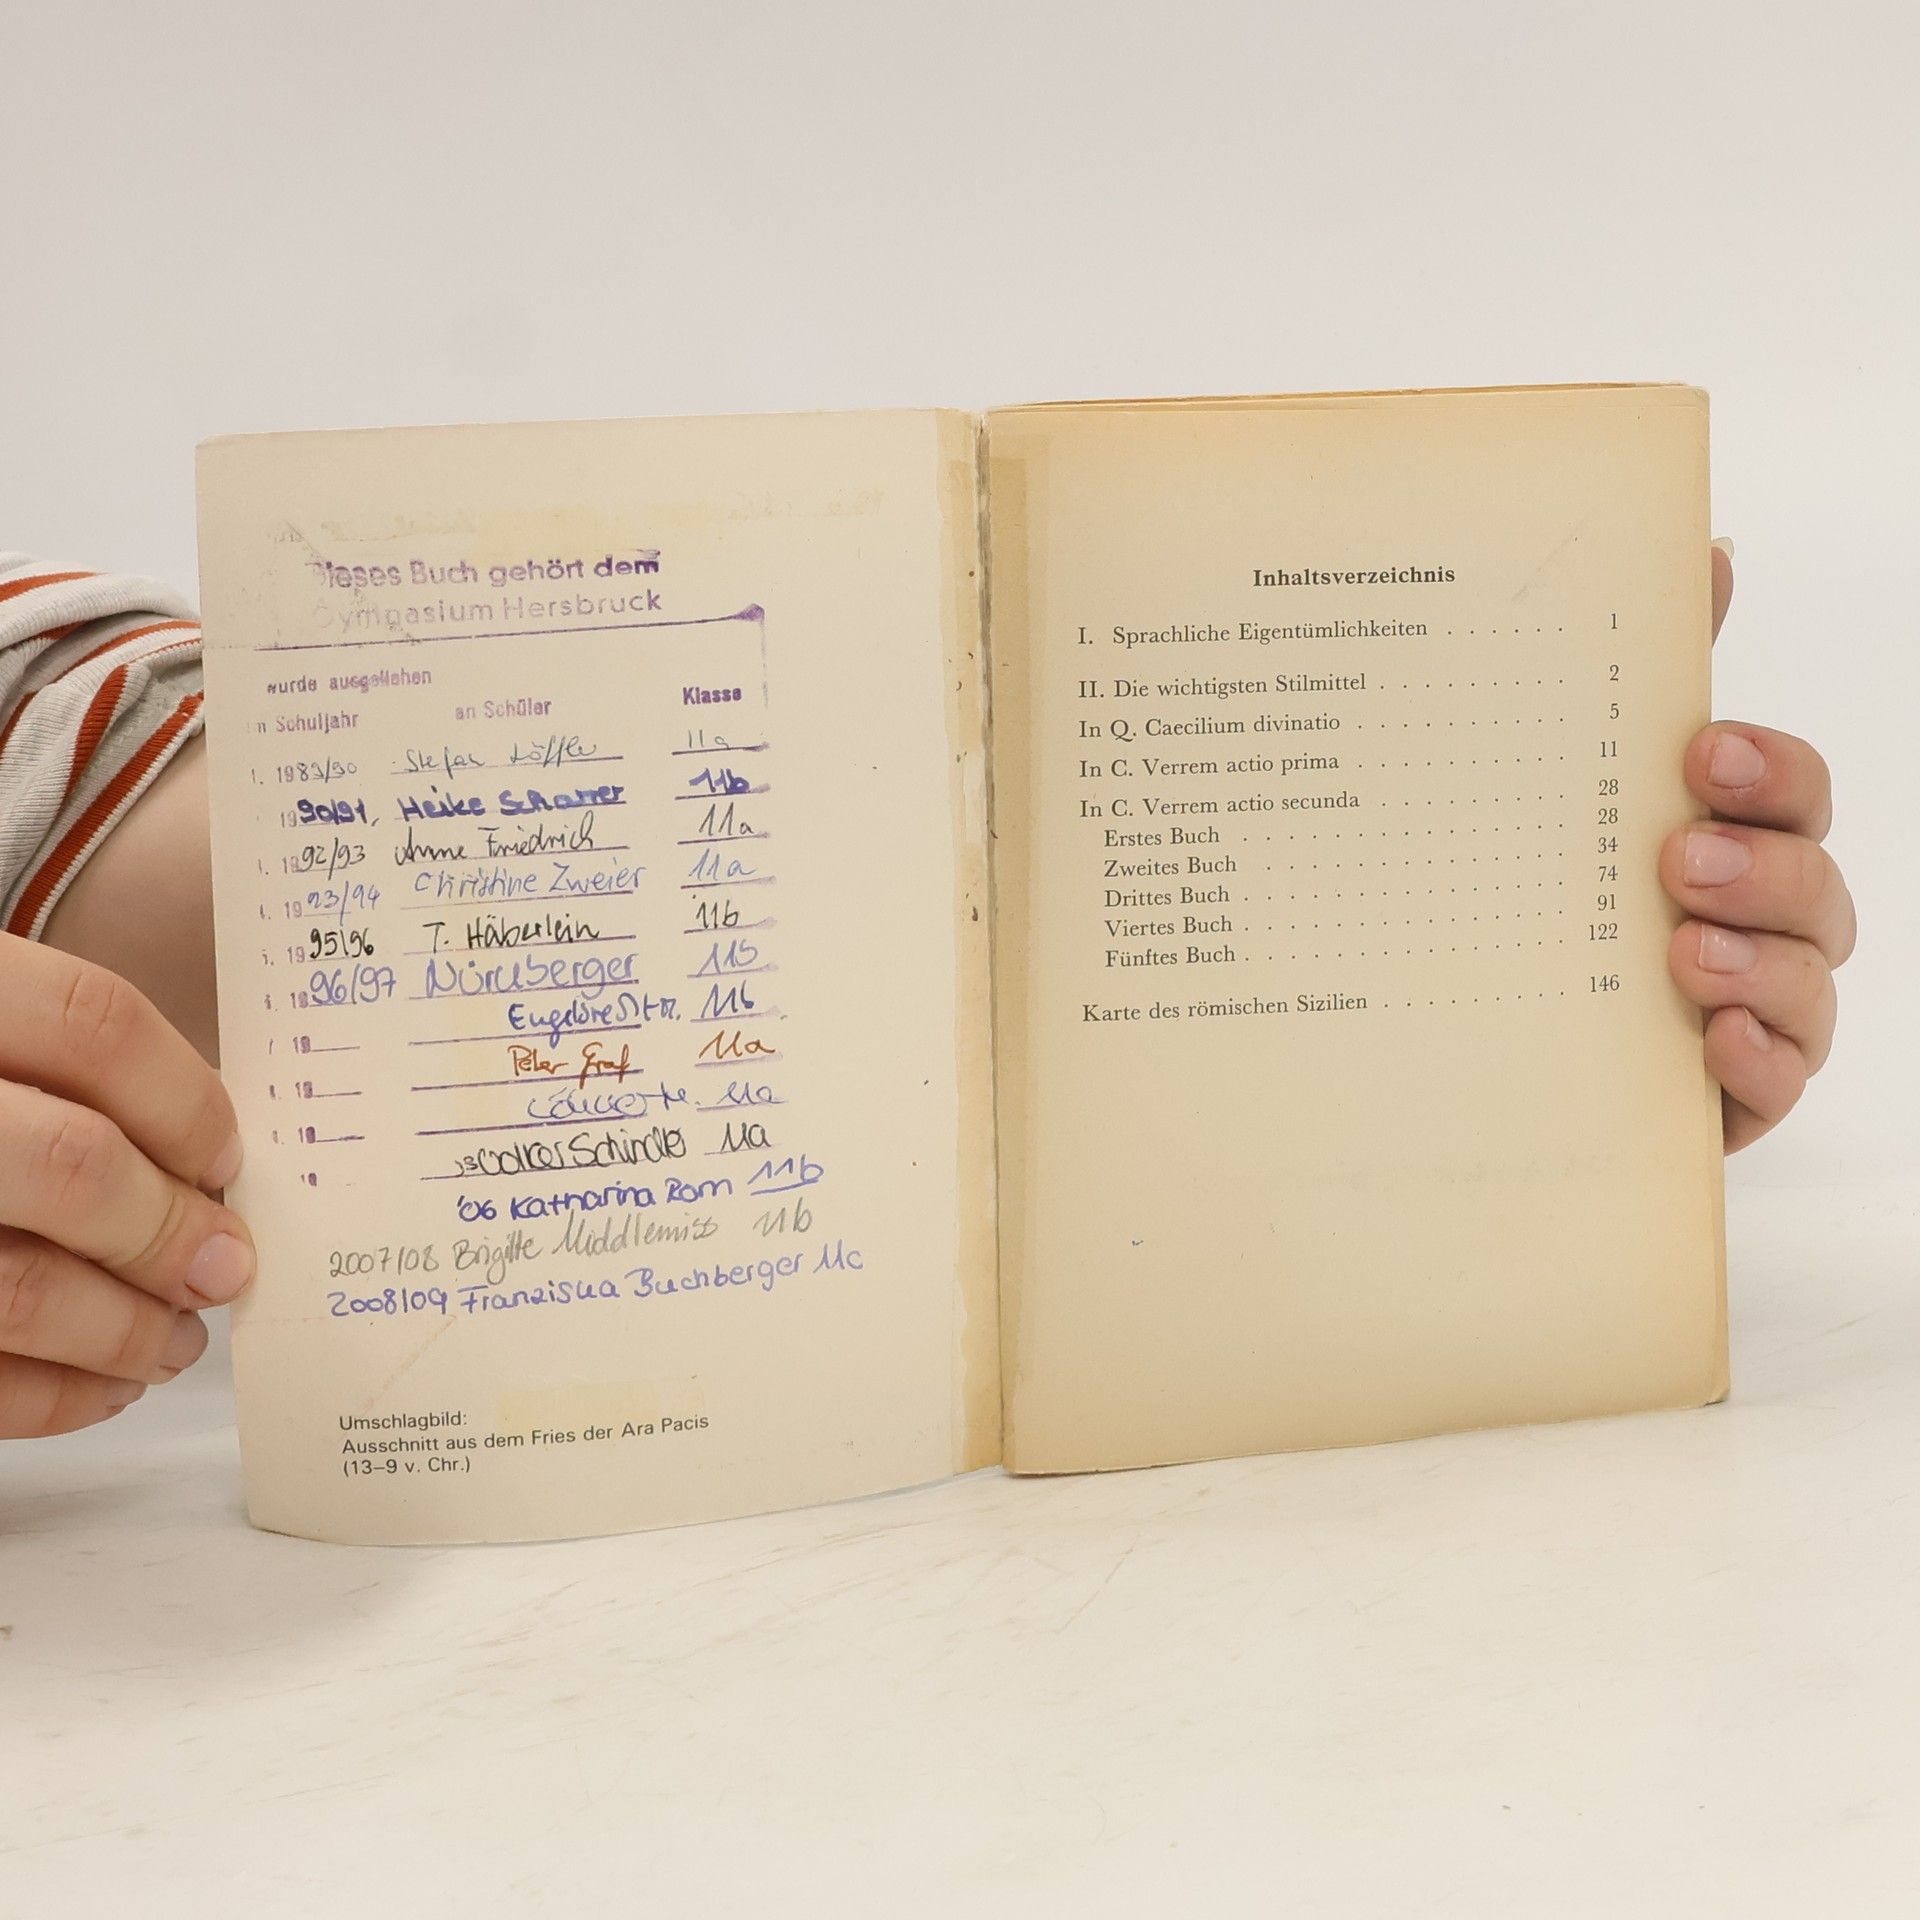 Dieses Buch gehört dem
Gymnasium Hersbruck
wurde ausgeliehen
im Schuljahr an Schüler Klasse
i. 1989/90 Stefan Löffler 11a
1990/91, Heike Scharrer 11b
i. 1992/93 Anne Friedrich 11a
i. 1993/94 Christine Zweier 11a
i. 1995/96 T. Häberlein 11b
i. 1996/97 Nürnberger 11b
19 11b
i. 19 Peter Graf 11a
i. 19 11a
19 Volker Schindler 11a
'06 Katharina Rom 11b
2007/08 Brigitte Middlemiss 11b
2008/09 Franziska Buchberger 11c
Umschlagbild:
Ausschnitt aus dem Fries der Ara Pacis
(13–9 v. Chr.)
Inhaltsverzeichnis
I. Sprachliche Eigentümlichkeiten . . . . . . 1
II. Die wichtigsten Stilmittel . . . . . . . . . 2
In Q. Caecilium divinatio . . . . . . . . . . 5
In C. Verrem actio prima . . . . . . . . . . 11
In C. Verrem actio secunda . . . . . . . . . 28
Erstes Buch . . . . . . . . . . . . . . . 28
Zweites Buch . . . . . . . . . . . . . . 34
Drittes Buch . . . . . . . . . . . . . . 74
Viertes Buch . . . . . . . . . . . . . . 91
Fünftes Buch . . . . . . . . . . . . . . 122
Karte des römischen Sizilien . . . . . . . . . 146